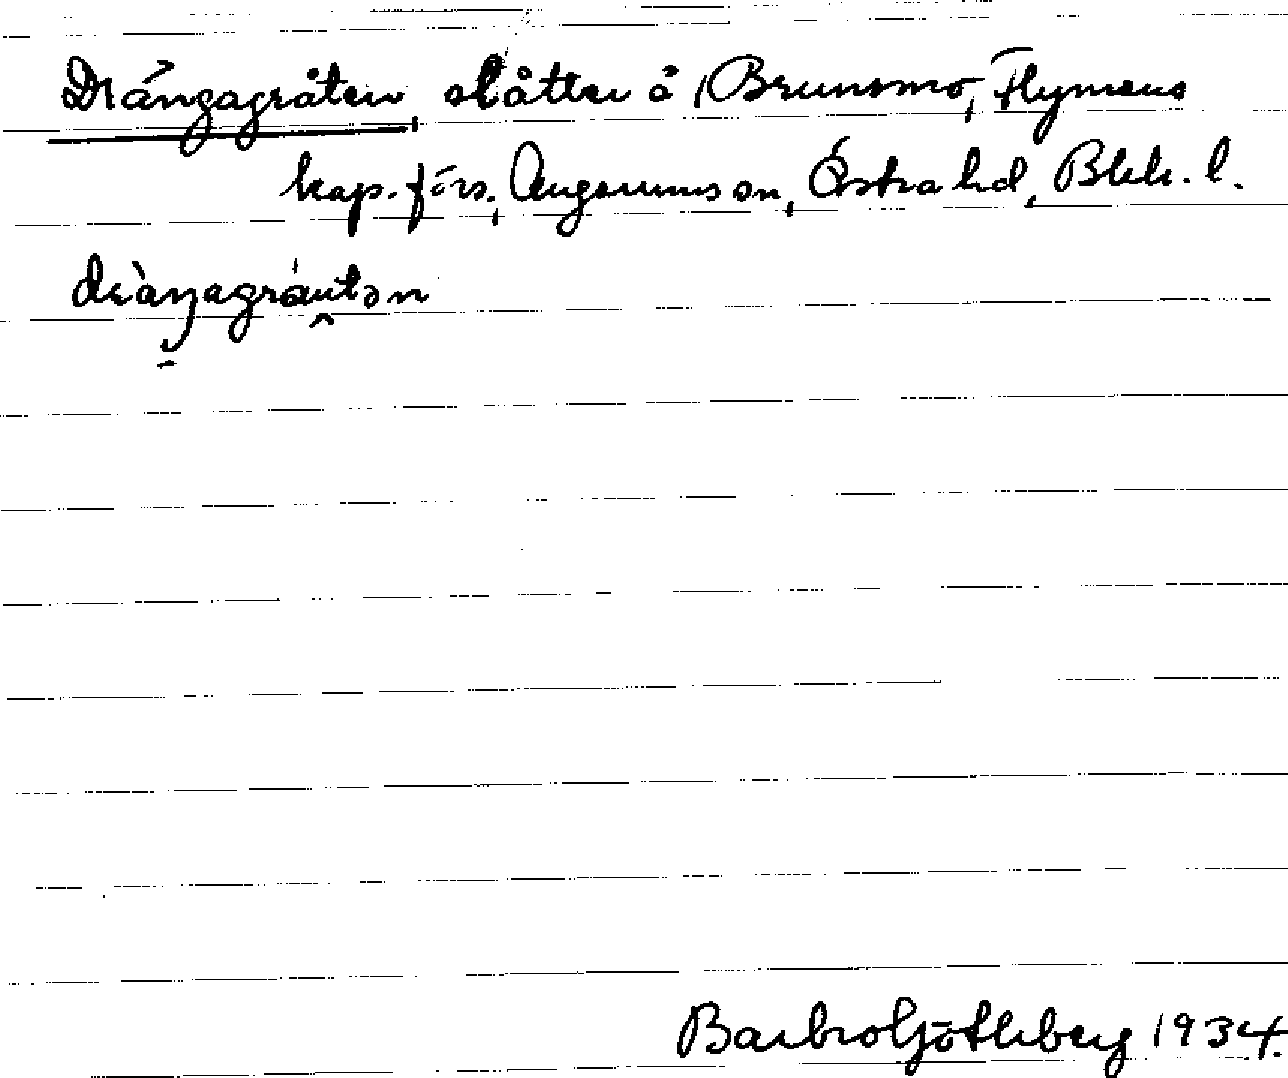 Drängagråten, slåtter å Brunsmo, Flymens
kap. förs., Augerums sn, Östra hd, Blek. l.
dràŋagráutən
Barbro Götlberg 1934.